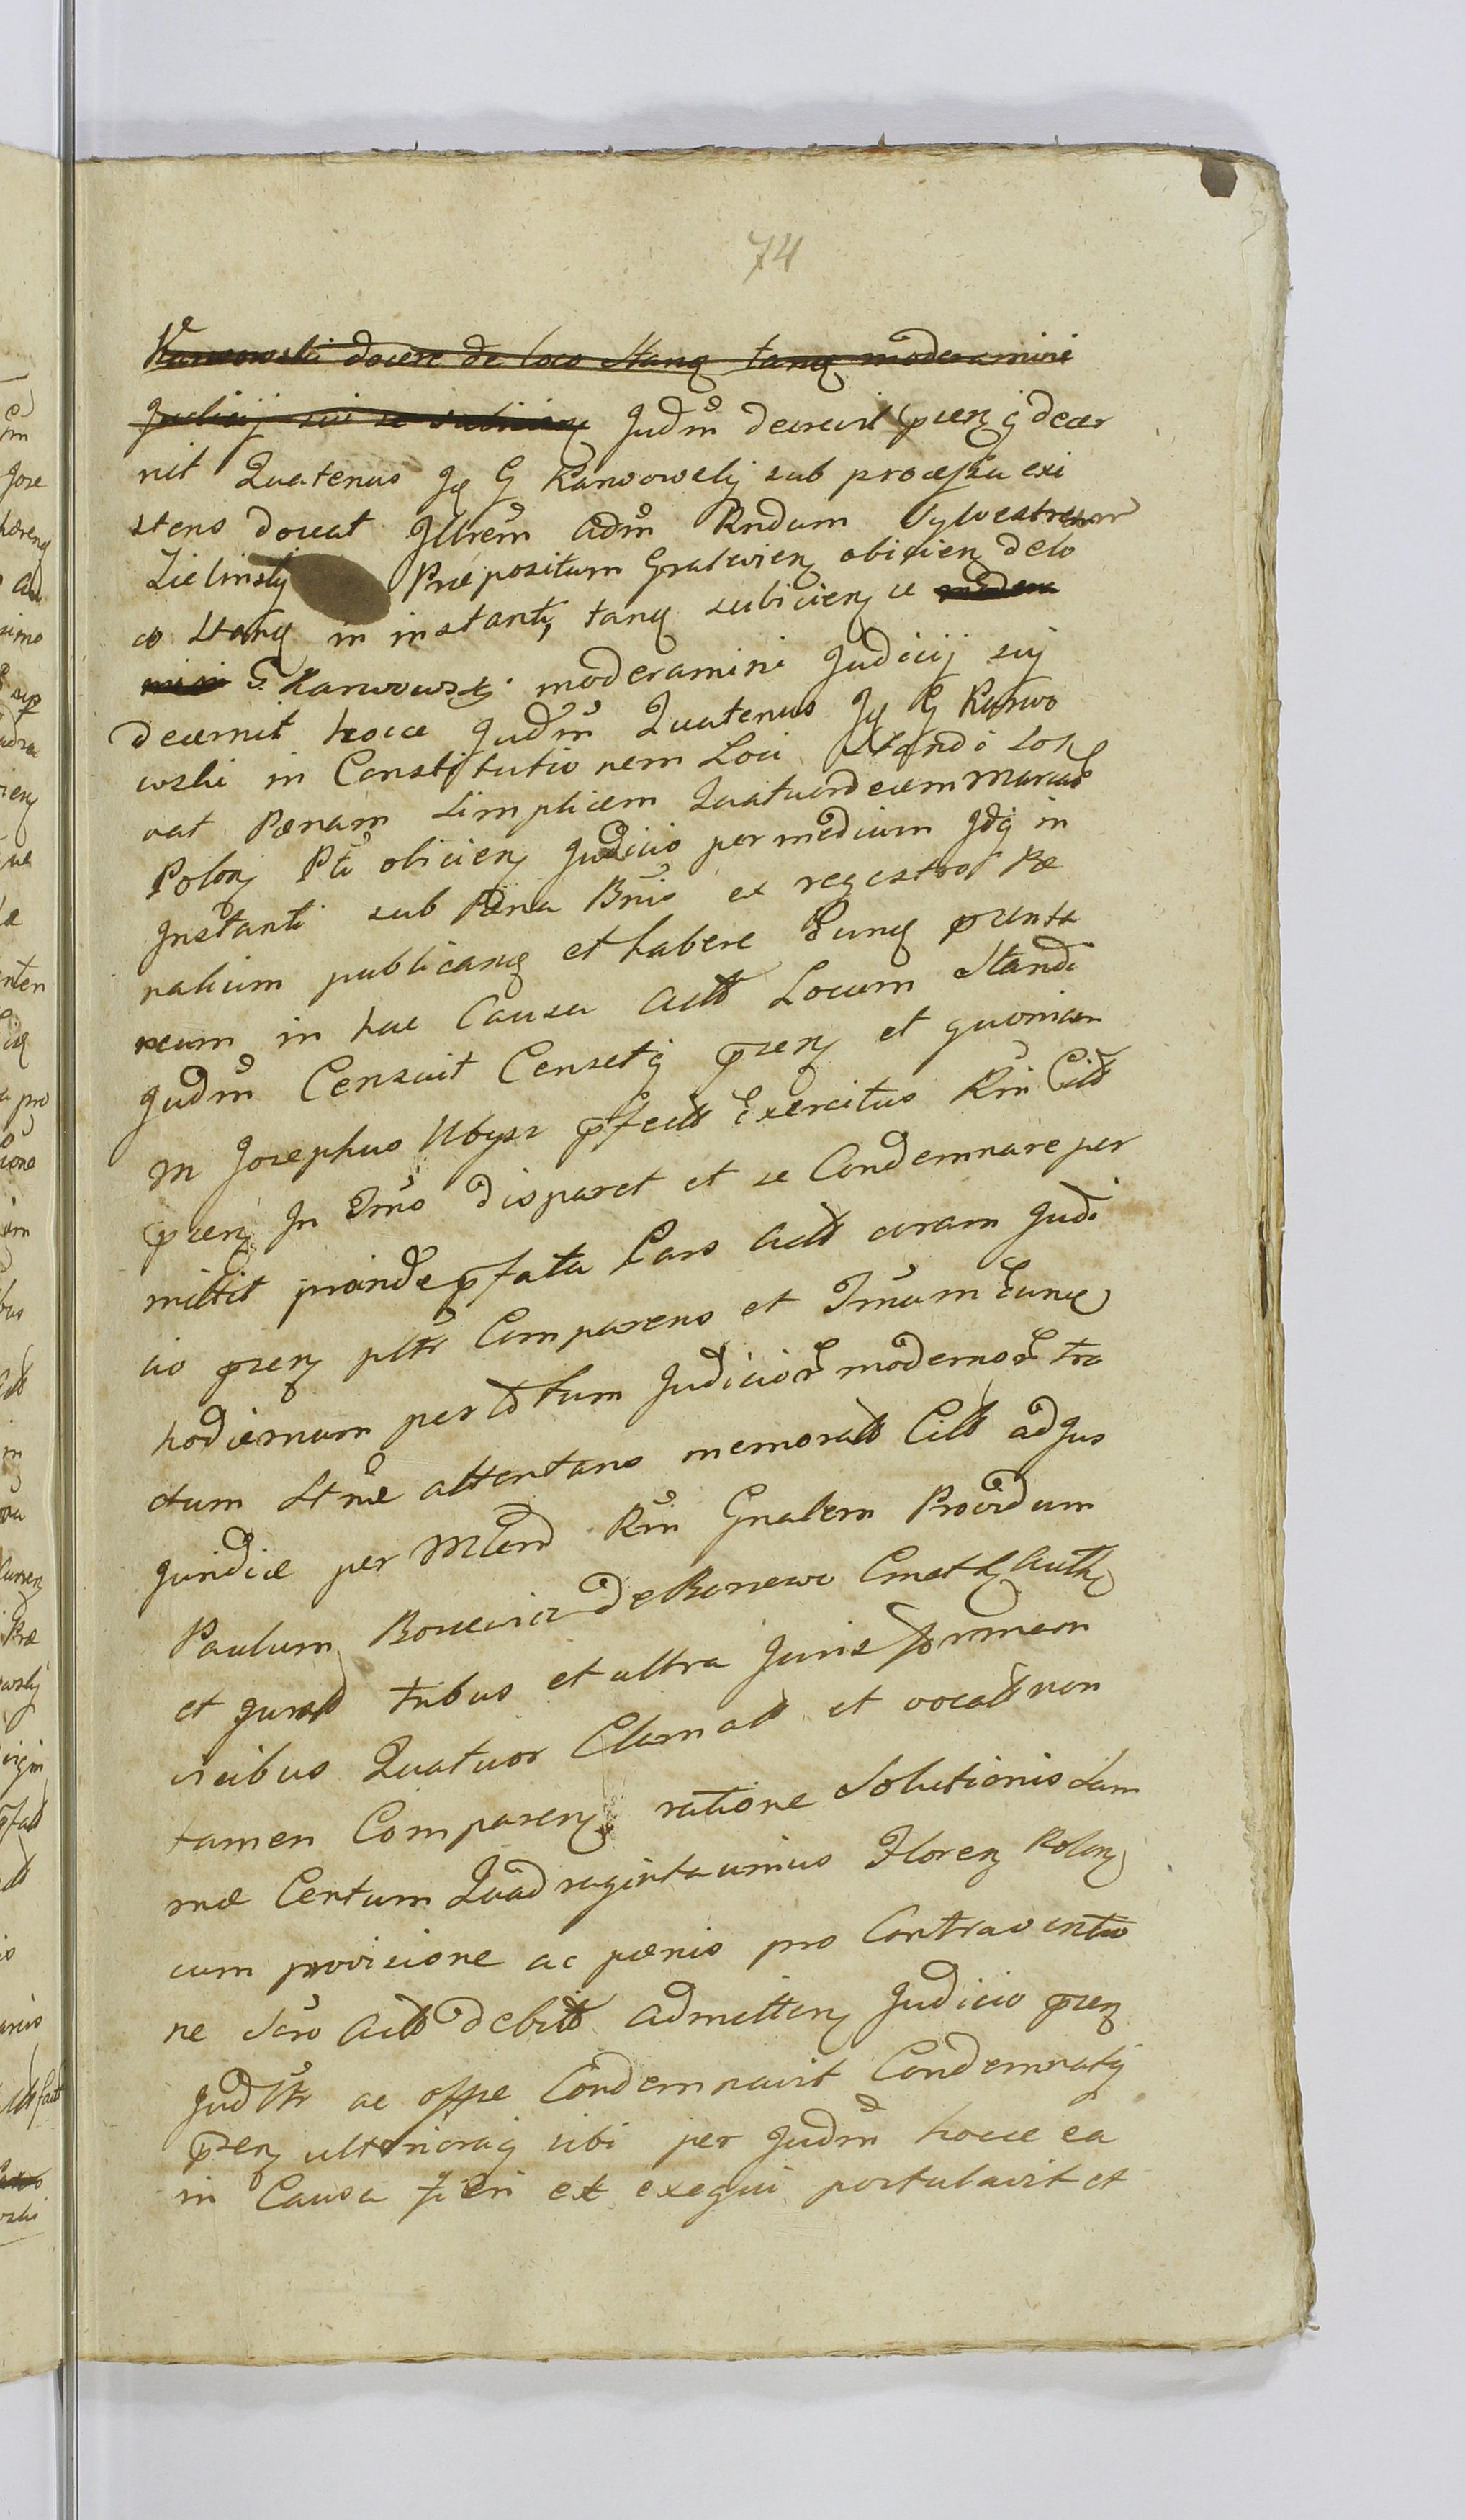 74
Karwowski docere de loco Stanq tanq moderamini
Judicij sui se subiicien Judm decrevit pnenq decer
nit Quatenus Jq G Karwowskj sub processu exi
stens doceat Illrem Adm Rndum Sylvestrum
Zielinskj Præpositum Grajevien obiicien de lo
co Stanq in instanti, tanq subiicien se modera
mini G. Karwowskj moderamini Judicij suj
decernit hocce Judm Quatenus Jq G Karwo
wski in Constitutionem Loci Standi sol
vat Pænam simplicem Quatuordecem Marcas
Polon Pti obiicien Judicio per medium Jdq in
Instanti sub Pæna Bnis ex regestro Pæ
nalium publicanq et habere Eunq pnta
neum in hac Causa Actt Locum Standi
Judm Censuit Censetq pnen et quoniam
M Josephus Ubysz pfectt Exercitus Rni Citt
pnen In Tmo disparet et se Condemnare per
mittit proinde pfata Pars Actt coram Judi
cio pnen pltr Comparens et Tmum Eunq
hodiernum per totum Judicior modernor tra
ctum Stne attentans memoratt Citt ad Jus
Juridice per Mtend Rni Gnalem Providum
Paulum Borewicz de Borzewo Cmeth Auth
et Juratt tribus et ultra Juris formam
vicibus Quatuor Clamatt et vocatt non
tamen Comparen ratione Solutionis Sum
mæ Centum Quadraginta unius Floren Polon
cum provisione ac pœnis pro Contraventio
ne Scro Actt debitt admitten Judicio pnen
Judltr ac offse Condemnavit Condemnatq
pnen ulterioraq sibi per Judm hocce ea
in Causa fieri et exequi postulavit et